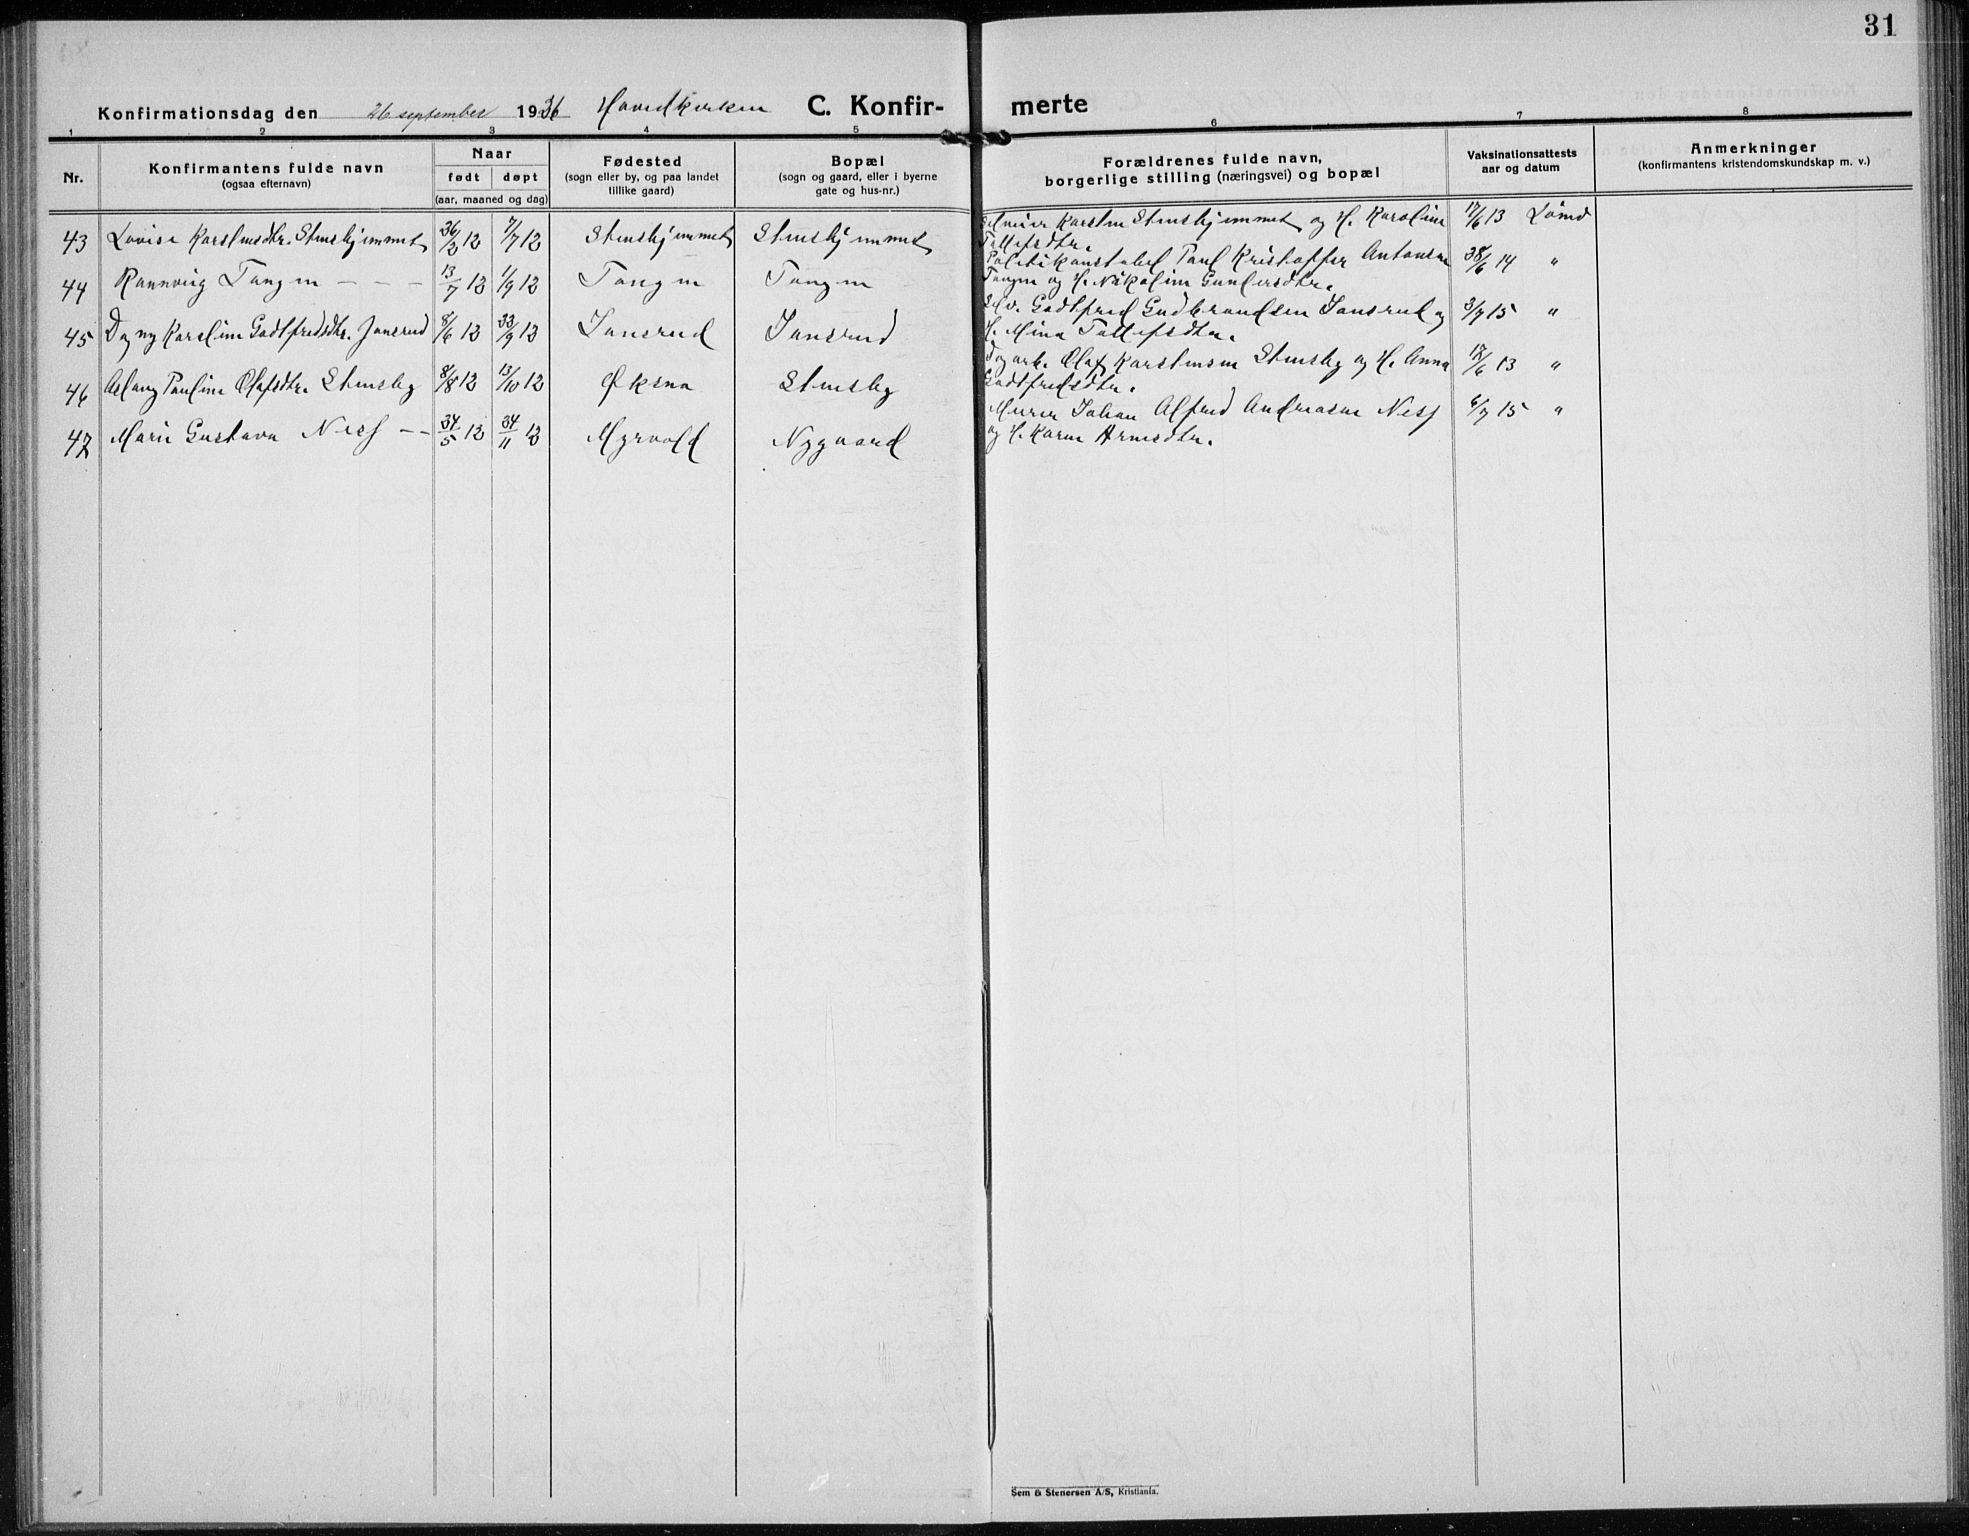 31
Konfirmationsdag den 26 september 1926 Hovedkirken C. Konfir- merte
1 2 3 4 5 6 7 8
Nr. Konfirmantens fulde navn Naar Fødested Bopæl Forældrenes fulde navn, Vaksinationsattests Anmerkninger
(ogsaa efternavn) født døpt (sogn eller by, og paa landet (sogn og gaard, eller i byerne borgerlige stilling (næringsvei) og bopæl aar og datum (konfirmantens kristendomskundskap m. v.)
(aar, maaned og dag) tillike gaard) gate og hus-nr.)
43 Lovise Karstensdtr. Stenshjemmet 26/2 12 7/7 12 Stenshjemmet Stenshjemmet Karsten Stenshjemmet og H. Karoline 17/6 13
Tollefsdtr.
44 Rannveig Tangen - - - 13/7 12 1/9 12 Tangen Tangen Politikonstabel Paul Kristoffer Antonsen 28/6 14 "
Tangen og H. Nikoline Gundersdtr.
45 Dagny Karoline Godtfredsdtr. Jansrud 8/6 12 22/9 12 Jansrud Jansrud Selv. Godtfred Gudbrandsen Jansrud og 3/7 15 "
H. Mina Tollefsdtr.
46 Aslaug Pauline Olafsdtr. Stensby 8/8 12 13/10 12 Øksna Stensby Dagarb. Olaf Karstensen Stensby og H. Anna 17/6 13 "
Godtfredsdtr.
47 Marie Gustava Ness -- 24/5 12 24/11 12 Myrvold Nygaard Murer Johan Alfred Andreasen Ness 6/7 15 "
og H. Karen Arnesdtr.
Sem & Stenersen A/S, Kristiania.